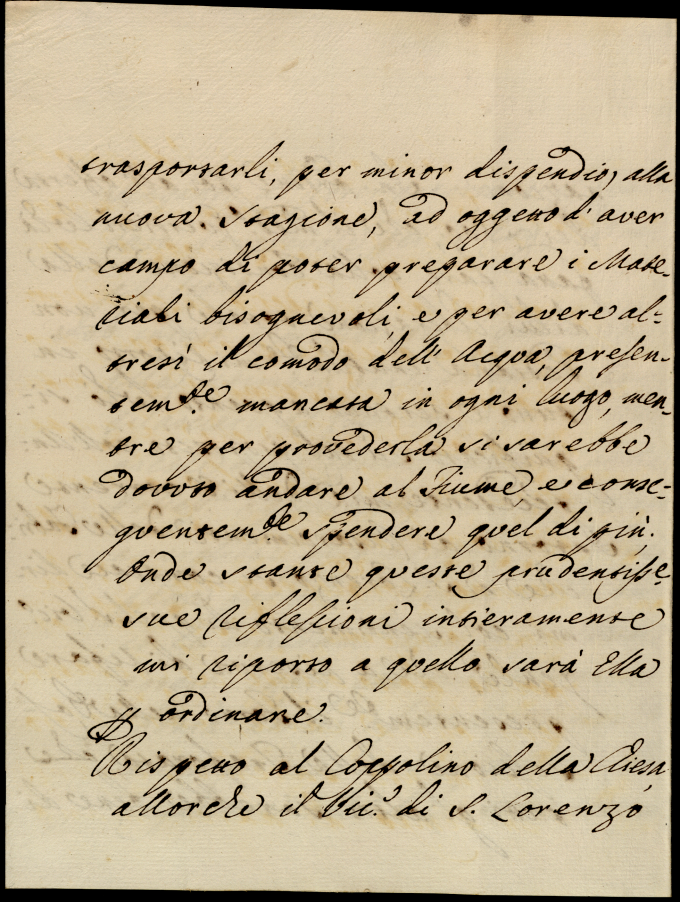 trasportarli, per minor dispendio, alla
nuova stagione, ad oggetto d'aver
campo di poter preparare i Mate-
riali bisognevoli, e per avere al-
tresì il comodo dell'Acqua, presen-
tem.te mancata in ogni luogo, men-
tre per provederla si sarebbe
dovuto andare al Fiume, e conse-
guentem.te spendere quel di più.
Onde stante queste prudentisse.
sue riflessioni intieramente
mi riporto a quello sarà Ella
p ordinare.
Rispetto al Coppolino della Chiesa
allorche il Vic.o di S. Lorenzo